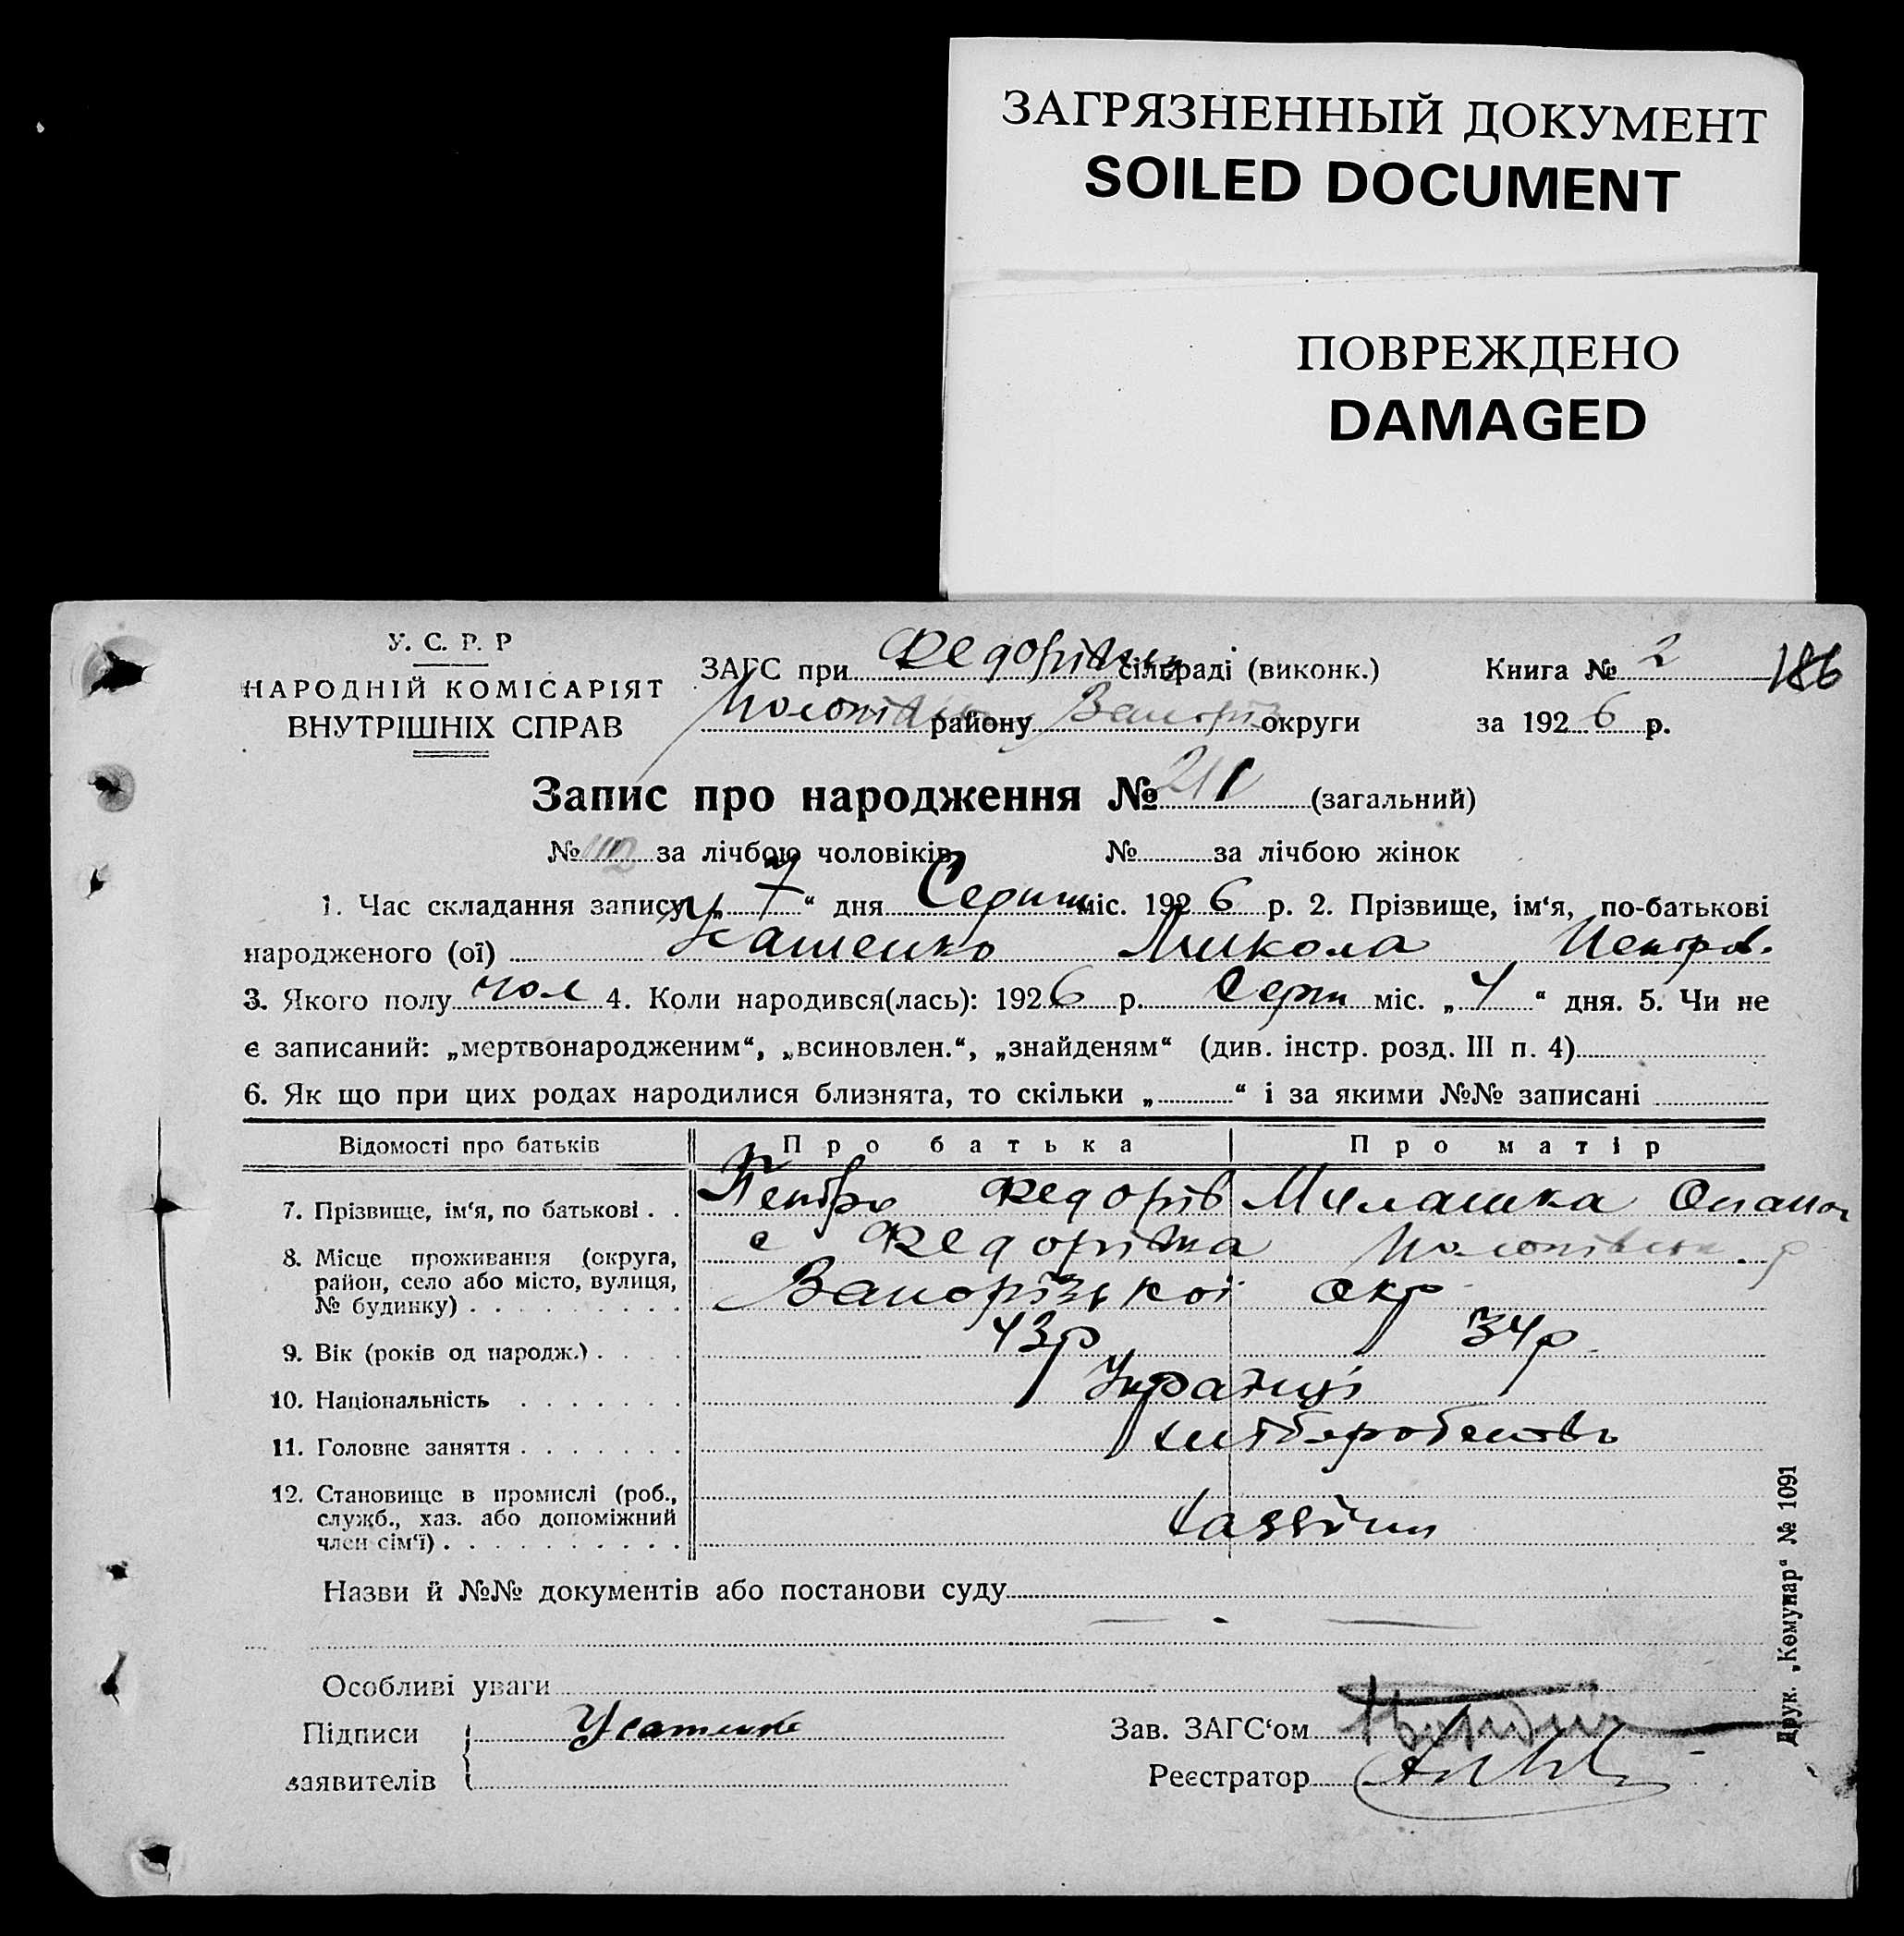 ЗАГРЯЗНЕННЫЙ ДОКУМЕНТ
SOILED DOCUMENT
ПОВРЕЖДЕНО
DAMAGED
У. С. Р. Р
НАРОДНІЙ КОМІСАРІЯТ
ВНУТРІШНІХ СПРАВ
ЗАГС при сільраді (виконк.)
району Запоріз округи
Книга № 2 186
за 1926 р.
Запис про народження № 211 (загальний)
№ за лічбою чоловіків № за лічбою жінок
1. Час складання запису „7“ дня Серпня міс. 1926 р. 2. Прізвище, ім‘я, по-батькові
народженого (ої) Микола Петров.
3. Якого полу чол 4. Коли народився(лась): 1926 р. Серп міс. „4“ дня. 5. Чи не
є записаний: „мертвонародженим“, „всиновлен.“, „знайденям“ (див. інстр. розд. III п. 4)
6. Як що при цих родах народилися близнята, то скільки „ “ і за якими №№ записані
Відомості про батьків Про батька Про матір
7. Прізвище, ім‘я, по батькові . . Петро Федорів Милашка Опанас
8. Місце проживання (округа, с Федорівка
район, село або місто, вулиця, Запорізької окр
№ будинку)
9. Вік (років од народж.) 43р 34р.
10. Національність Українці
11. Головне заняття хліборобство
12. Становище в промислі (роб.,
служб., хаз. або допоміжний
член сім‘ї)
Назви й №№ документів або постанови суду
Особливі уваги
Підписи
заявителів
Зав. ЗАГС‘ом
Реєстратор
Друк. „Комунар“ № 1091